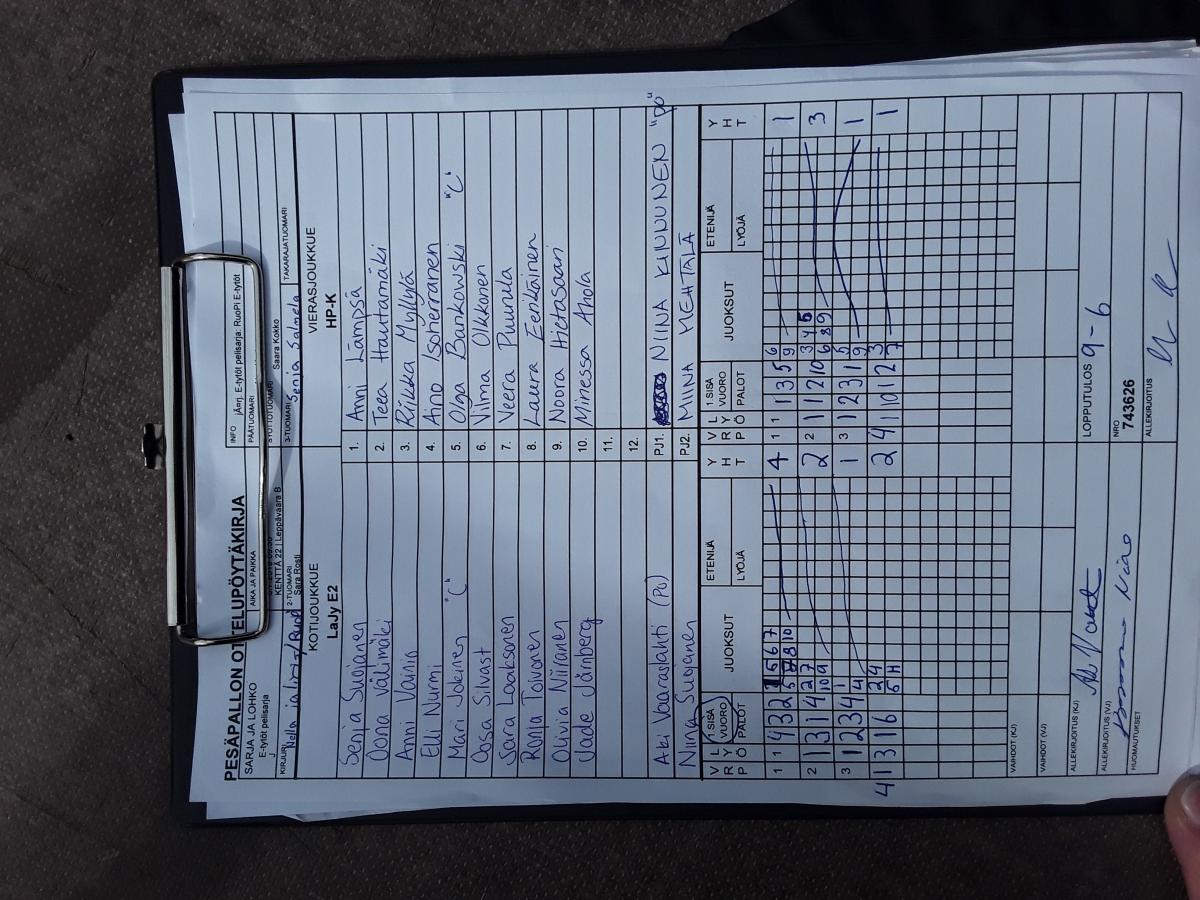 PESÄPALLON OTTELUPÖYTÄKIRJA
SARJA JA LOHKO
E-tytöt pelisarja
J
AIKA JA PAIKKA
KENTTÄ 22 | Leppävaara B
INFO jÄrj. E-tytöt pelisarja: RuoPi E-tytöt
PÄÄTUOMARI
SYÖTTÖTUOMARI Saara Kokko
KIRJURI
2-TUOMARI
Sara Rosti
3-TUOMARI Senja Salmela
TAKARAJATUOMARI
KOTIJOUKKUE
LaJy E2
VIERASJOUKKUE
HP-K
Senja Suojanen 1. Anni Lämpsä
Oona Välimäki 2. Teea Hautamäki
Anni Vainin 3. Riikka Myllylä
Elli Nurmi 4. Aino Isoherranen
Mari Jokinen "C" 5. Olga Bankowski "C"
Oosa Silvast 6. Vilma Olkkonen
Sara Laaksonen 7. Veera Puurula
Ronja Toivonen 8. Laura Eerikäinen
Olivia Niiranen 9. Noora Hietasaari
Jade Järnberg 10. Minessa Ahola
11.
12.
Aki Vaaraslahti (PJ) PJ1. NIINA KINNUNEN "PJ"
Niina Suojanen PJ2. MIINA MEHTÄLÄ
VRP LYÖ 1 SISÄ VUORO PALOT JUOKSUT ETENIJÄ LYÖJÄ YHT VRP LYÖ 1 SISÄ VUORO PALOT JUOKSUT ETENIJÄ LYÖJÄ YHT
1 1 4 3 2 4 1 1 1 3 5 6 9 1
2 1 3 1 4 2 7 10 9 2 2 1 1 2 10 3 4 5 6 8 9 3
3 1 2 3 4 1 4 1 3 1 2 3 1 5 9 1
4 1 3 1 6 2 4 5 H 2 4 1 0 1 2 3 7 1
VAIHDOT (KJ)
VAIHDOT (VJ)
ALLEKIRJOITUS (KJ)
LOPPUTULOS 9-6
ALLEKIRJOITUS (VJ)
NRO
743626
HUOMAUTUKSET
ALLEKIRJOITUS